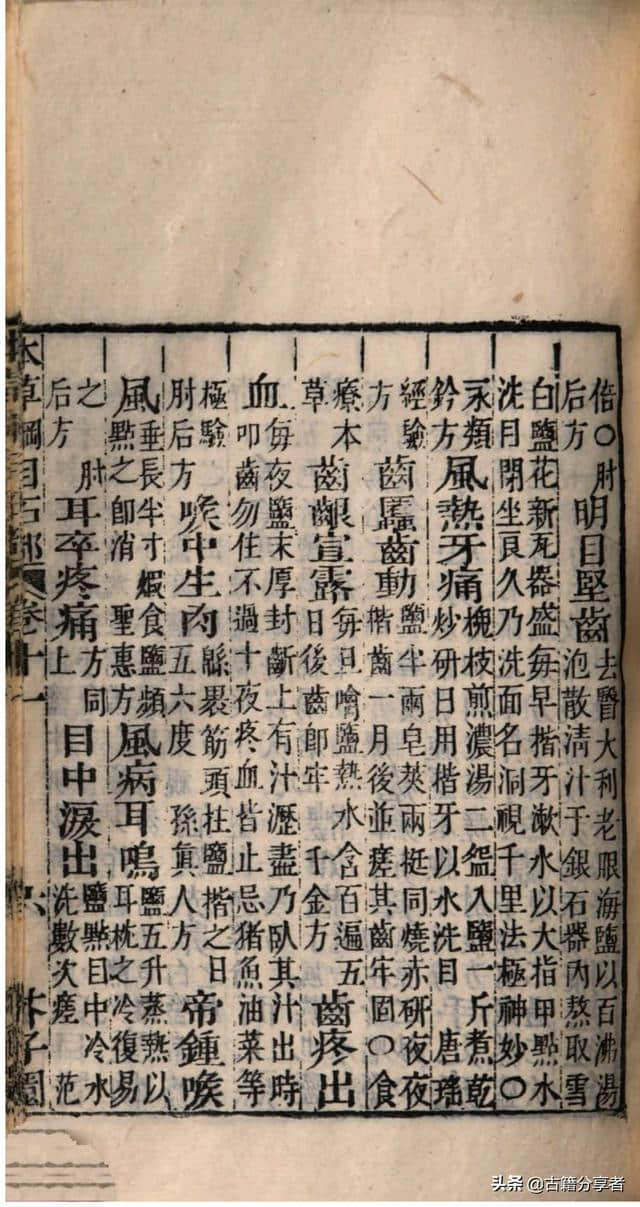 倍〇肘
后方
明目堅齒
去瞖大利老眼海鹽以百沸湯
泡散清汁于銀石器內熬取雪
白鹽花新瓦器盛每早揩牙漱水以大指甲點水
洗目閉坐良久乃洗面名洞視千里法極神妙〇
永類
鈐方
風熱牙痛
槐枝煎濃湯二盌入鹽一斤煮乾
炒研日用揩牙以水洗目 唐瑤
經驗
方
齒䘌齒動
鹽半兩皂莢兩挺同燒赤研夜夜
揩齒一月後並瘥其齒牢固〇食
療本
草
齒齦宣露
每旦噙鹽熱水含百遍五
日後齒即牢 千金方
齒疼出
血
每夜鹽末厚封齦上有汁瀝盡乃臥其汁出時
叩齒勿住不過十夜疼血皆止忌猪魚油菜等
極驗
肘后方
喉中生肉
綿裹筋頭拄鹽揩之日
五六度 孫真人方
帝鍾喉
風
垂長半寸煆食鹽頻
點之即消 聖惠方
風病耳鳴
鹽五升蒸熱以
耳枕之冷復易
之 肘
后方
耳卒疼痛
方同
上
目中淚出
鹽點目中冷水
洗數次瘥 范
本草綱目石部 卷十一 六 芥子園
头条 @古籍分享者